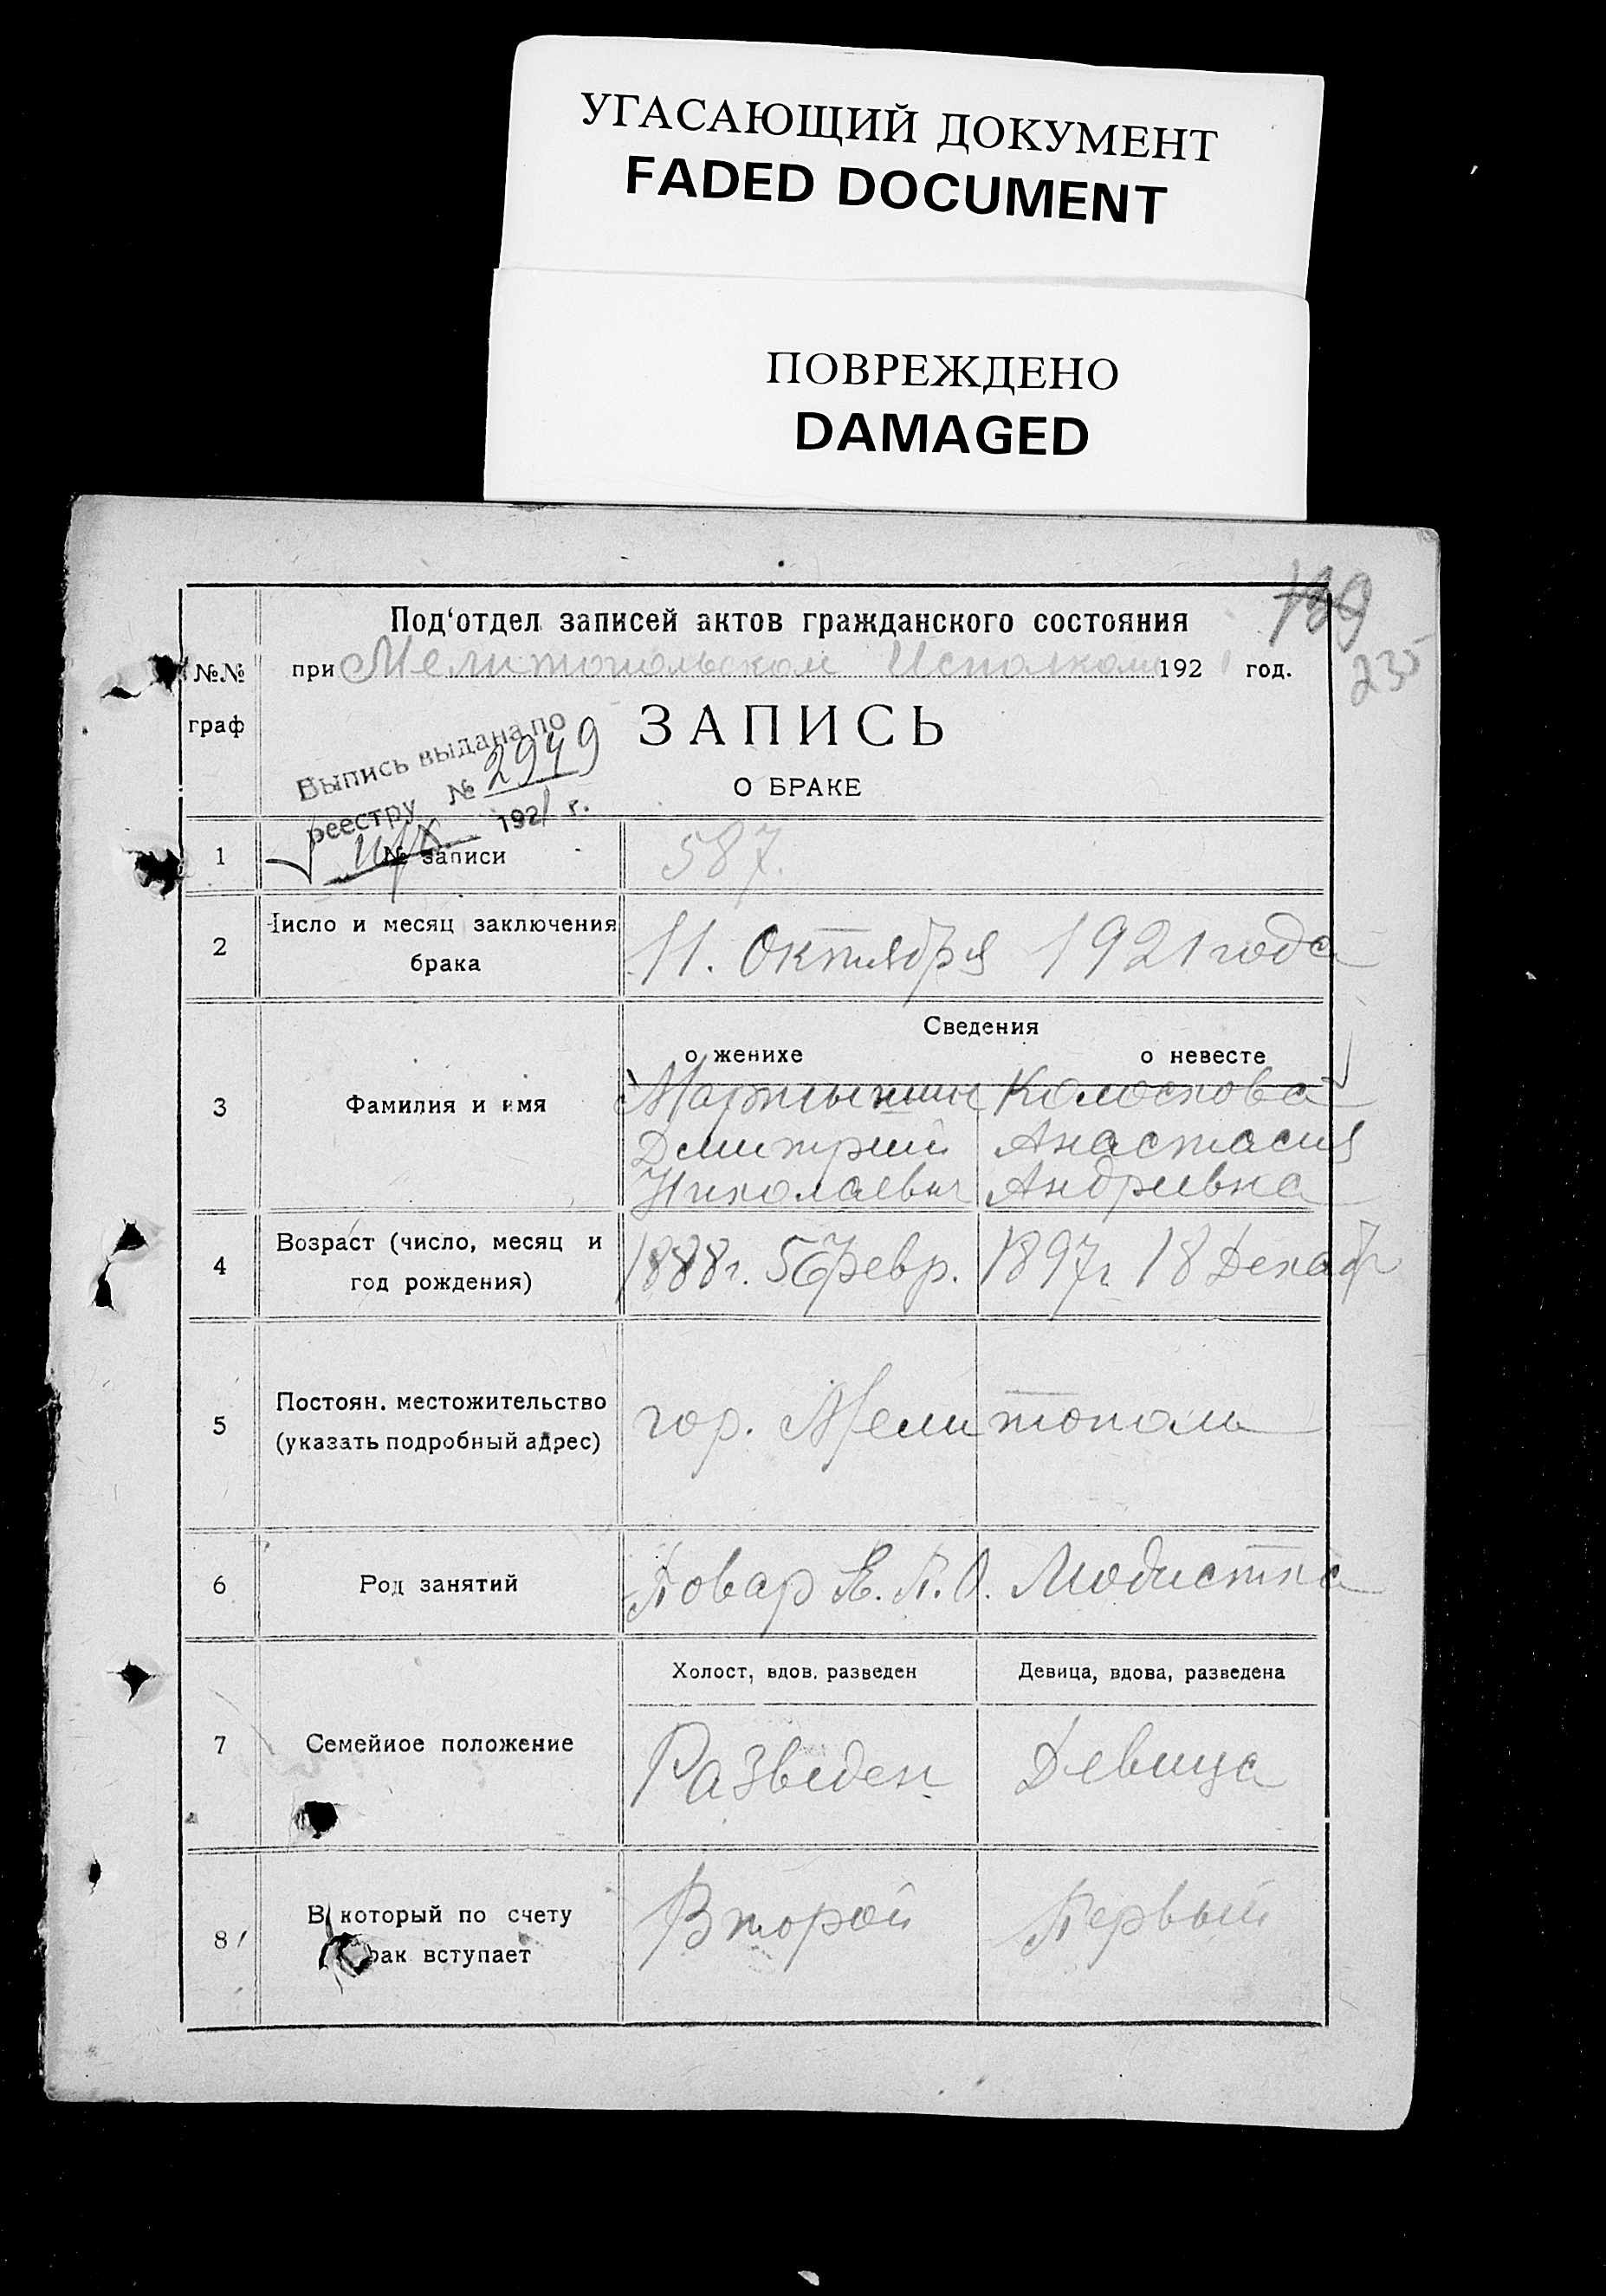 УГАСАЮЩИЙ ДОКУМЕНТ
FADED DOCUMENT
ПОВРЕЖДЕНО
DAMAGED
139
235
Под'отдел записей актов гражданского состояния
№№ граф
при Мелитопольском Исполкоме 1921 год.
ЗАПИСЬ
О БРАКЕ
Выпись выдана по
реестру № 2949
1921 г.
1 № записи 587.
2 Число и месяц заключения брака 11. Октября 1921 года
Сведения
о женихе о невесте
3 Фамилия и имя
Мартынин Колоскова
Дмитрий Анастасия
Николаевич Андреевна
4 Возраст (число, месяц и год рождения) 1888 г. 5 Февр. 1897 г 18 Декаб
5 Постоян. местожительство (указать подробный адрес) гор. Мелитополь
6 Род занятий Повар Е. П. О. Модистка
Холост, вдов. разведен Девица, вдова, разведена
7 Семейное положение Разведен Девица
8 В который по счету брак вступает Второй Первый